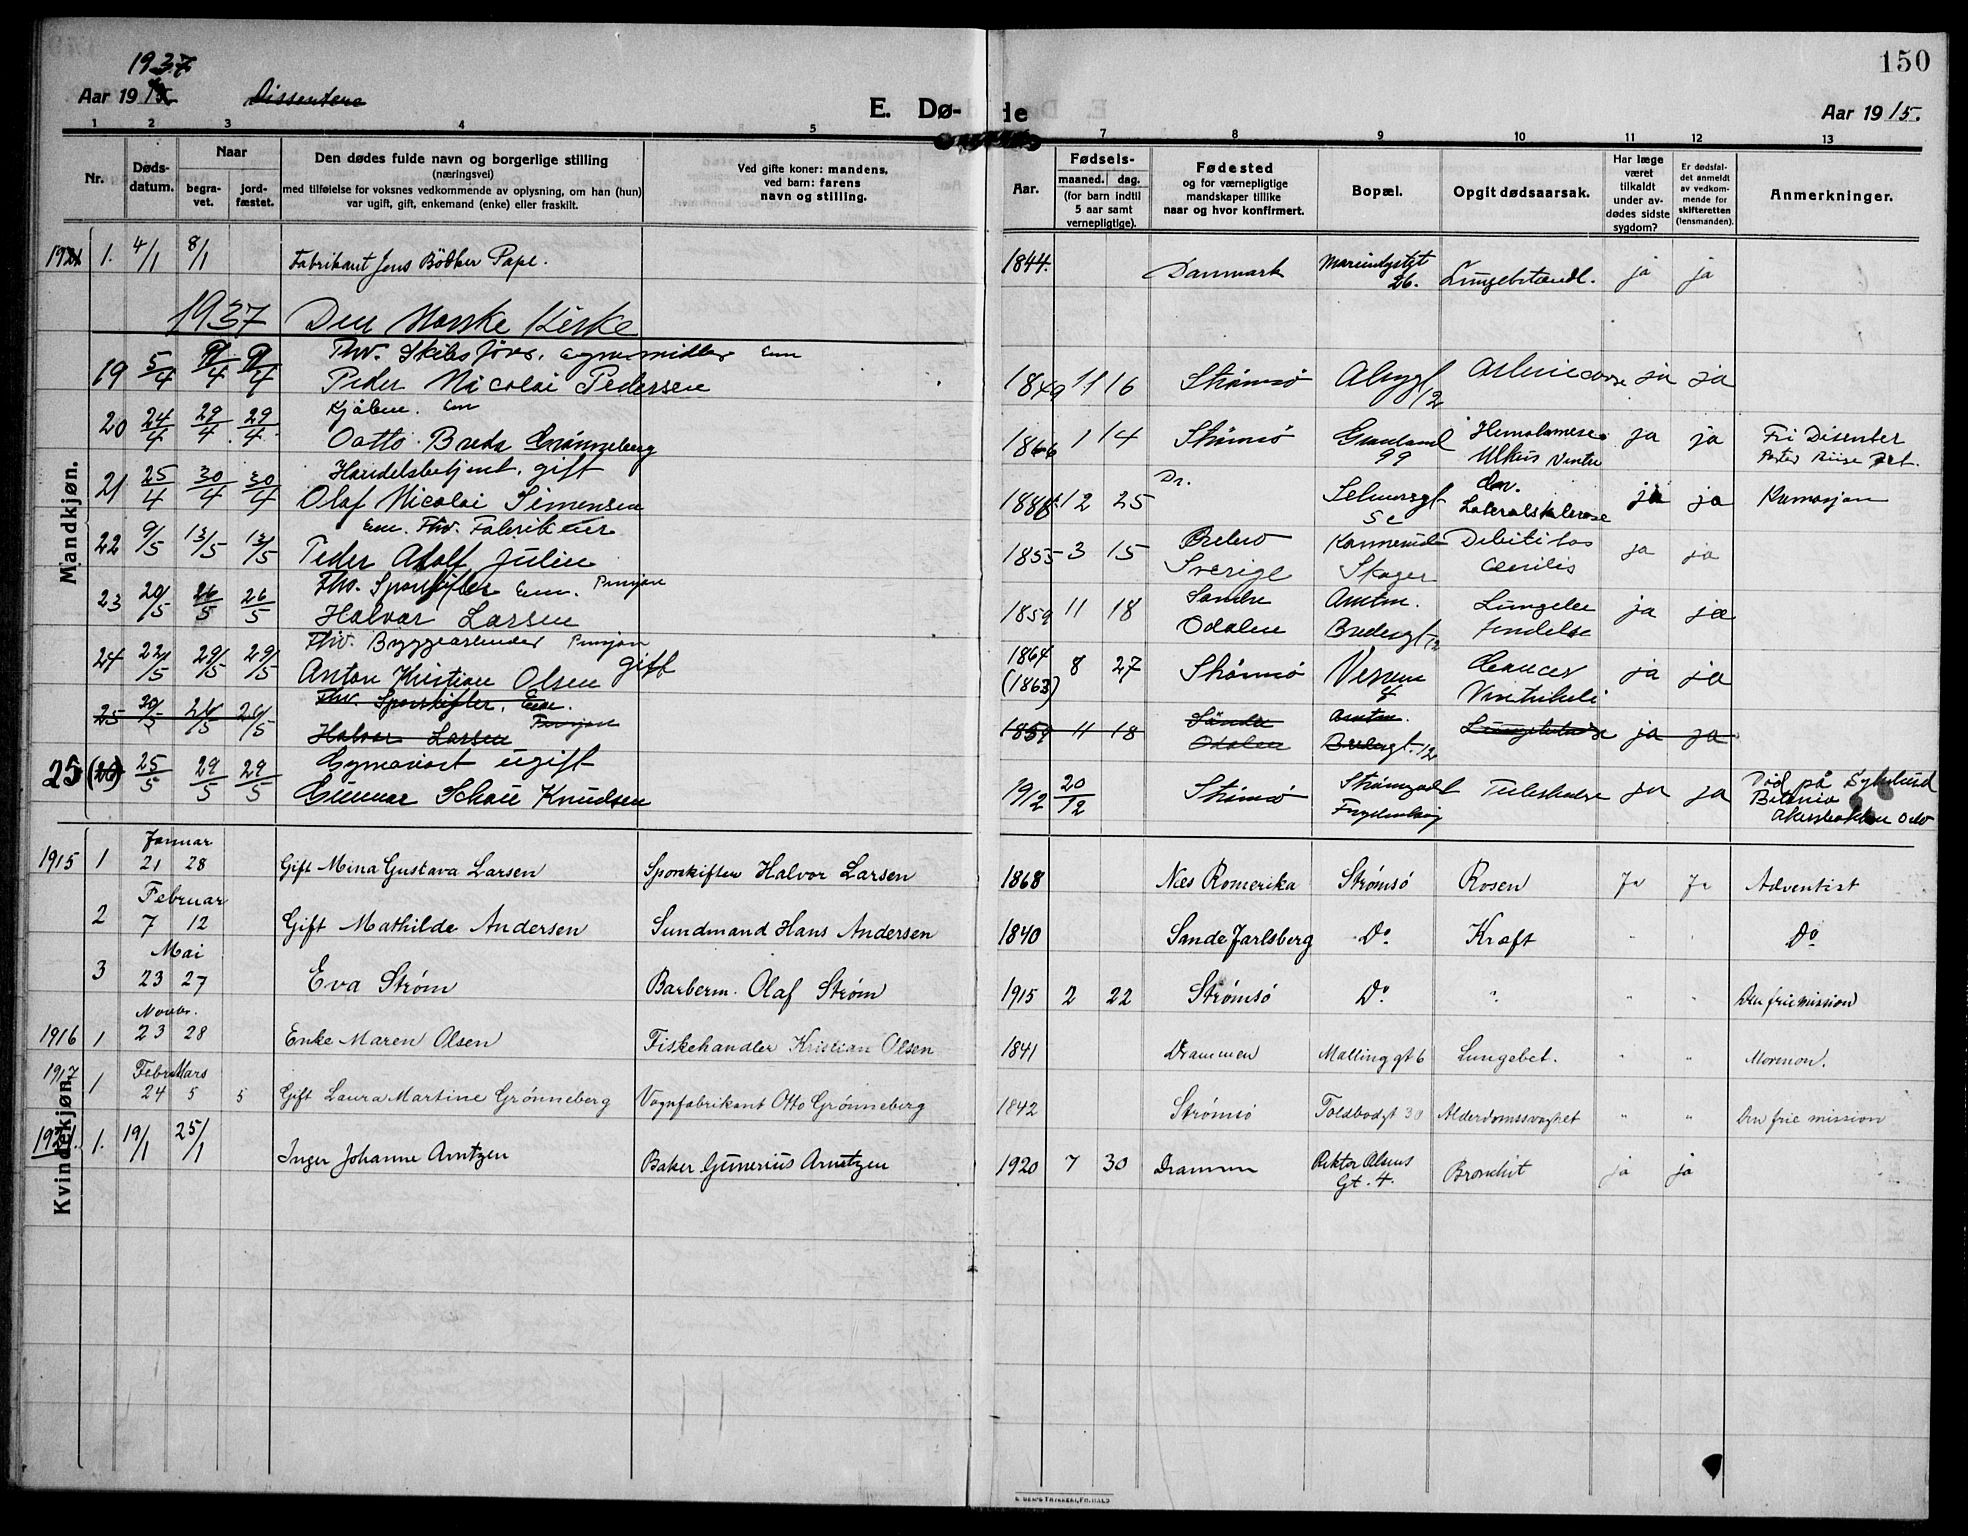 150
1937
Aar 1915. Dissentere
E. Dø- de
Aar 1915.
1 2 3 4 5 7 8 9 10 11 12 13
Nr.
Døds-datum.
Naar
begra-vet.
jord-fæstet.
Den dødes fulde navn og borgerlige stilling
(næringsvei)
med tilføielse for voksnes vedkommende av oplysning, om han (hun)
var ugift, gift, enkemand (enke) eller fraskilt.
Ved gifte koner: mandens,
ved barn: farens
navn og stilling.
Aar.
Fødsels-
maaned. dag.
(for barn indtil
5 aar samt
vernepligtige).
Fødested
og for værnepligtige
mandskaper tillike
naar og hvor konfirmert.
Bopæl.
Opgit dødsaarsak.
Har læge
været
tilkaldt
under av-
dødes sidste
sygdom?
Er dødsfal-
det anmeldt
av vedkom-
mende for
skifteretten
(lensmanden).
Anmerkninger.
Mandkjøn.
1921 1. 4/1 8/1 Fabrikant Jens Bödker Pape. 1844. Danmark 26. Lungebetændl. ja ja
1937 Den Norske Kirke
Fhv. Skibsförer. Em
19 5/4 9/4 9/4 Peder Nicolai Pedersen 1849 11 16 Strømsö 12 ja ja
Em
20 24/4 29/4 29/4 Otto Breda Grønneberg 1866 1 14 Strømsö Grønland 99 Ulkus Ventr ja ja Fri Disenter
Handelsbetjent. gift
21 25/4 30/4 30/4 Olaf Nicolai Simensen 12 25 Dr. Selmersgt 5c ja ja
Em. Fhv. Fabrikeier
22 9/5 13/5 13/5 Peder Adolf Julin 1855 3 15 Örebro Sverige Konnerud Skoger Debilitas senilis ja ja
Fhv. Sporskifter Em. Pensjon
23 20/5 26/5 26/5 Halvor Larsen 1859 11 18 Søndre Odalen Amtm. Bredesgt 12 Lungebetendelse ja ja
Fhv. Byggearbeider Pensjon
24 22/5 29/5 29/5 Anton Kristian Olsen gift 1864 (1863) 8 27 Strømsö 4 Cancer Ventrikuli ja ja
Fhv. Sporskifter, Em.
25 20/5 26/5 26/5 Halvor Larsen Pensjon 1859 11 18 Söndre Odalen Amtm. Bredesgt. 12 Lungebetendelse ja ja
Gymnasiast ugift
25 (26) 25/5 29/5 29/5 Gunnar Schou Knudsen 1912 20/12 Strömsö ja ja Död på
Kvindekjøn.
Januar
1915 1 21 28 Gift Mina Gustava Larsen Sporskifter Halvor Larsen 1868 Næs Romerike Strømsö Rosen Ja Ja Adventist
Februar
2 7 12 Gift Mathilde Andersen Sundmand Hans Andersen 1840 Sande Jarlsberg Do. Kræft " " Do
Mai
3 23 27 Eva Strøm Barberm. Olaf Strøm 1915 2 22 Strømsö Do. " " " Den frie mission
Novbr.
1916 1 23 28 Enke Maren Olsen Fiskehandler Kristian Olsen 1841 Drammen Malling gt 6 Lungebet. " " Mormon.
Febr Mars
1917 1 24 5 5 Gift Laura Martine Grønneberg Vognfabrikant Otto Grønneberg 1842 Strømsö Toldbodgt 30 Alderdomssvaghet " " Den frie mission
1921. 1. 19/1 25/1 Inger Johanne Arntzen Baker Gunerius Arntzen 1920 7 30 Drammen Rektor Olsens Gt. 4. Bronchit ja ja